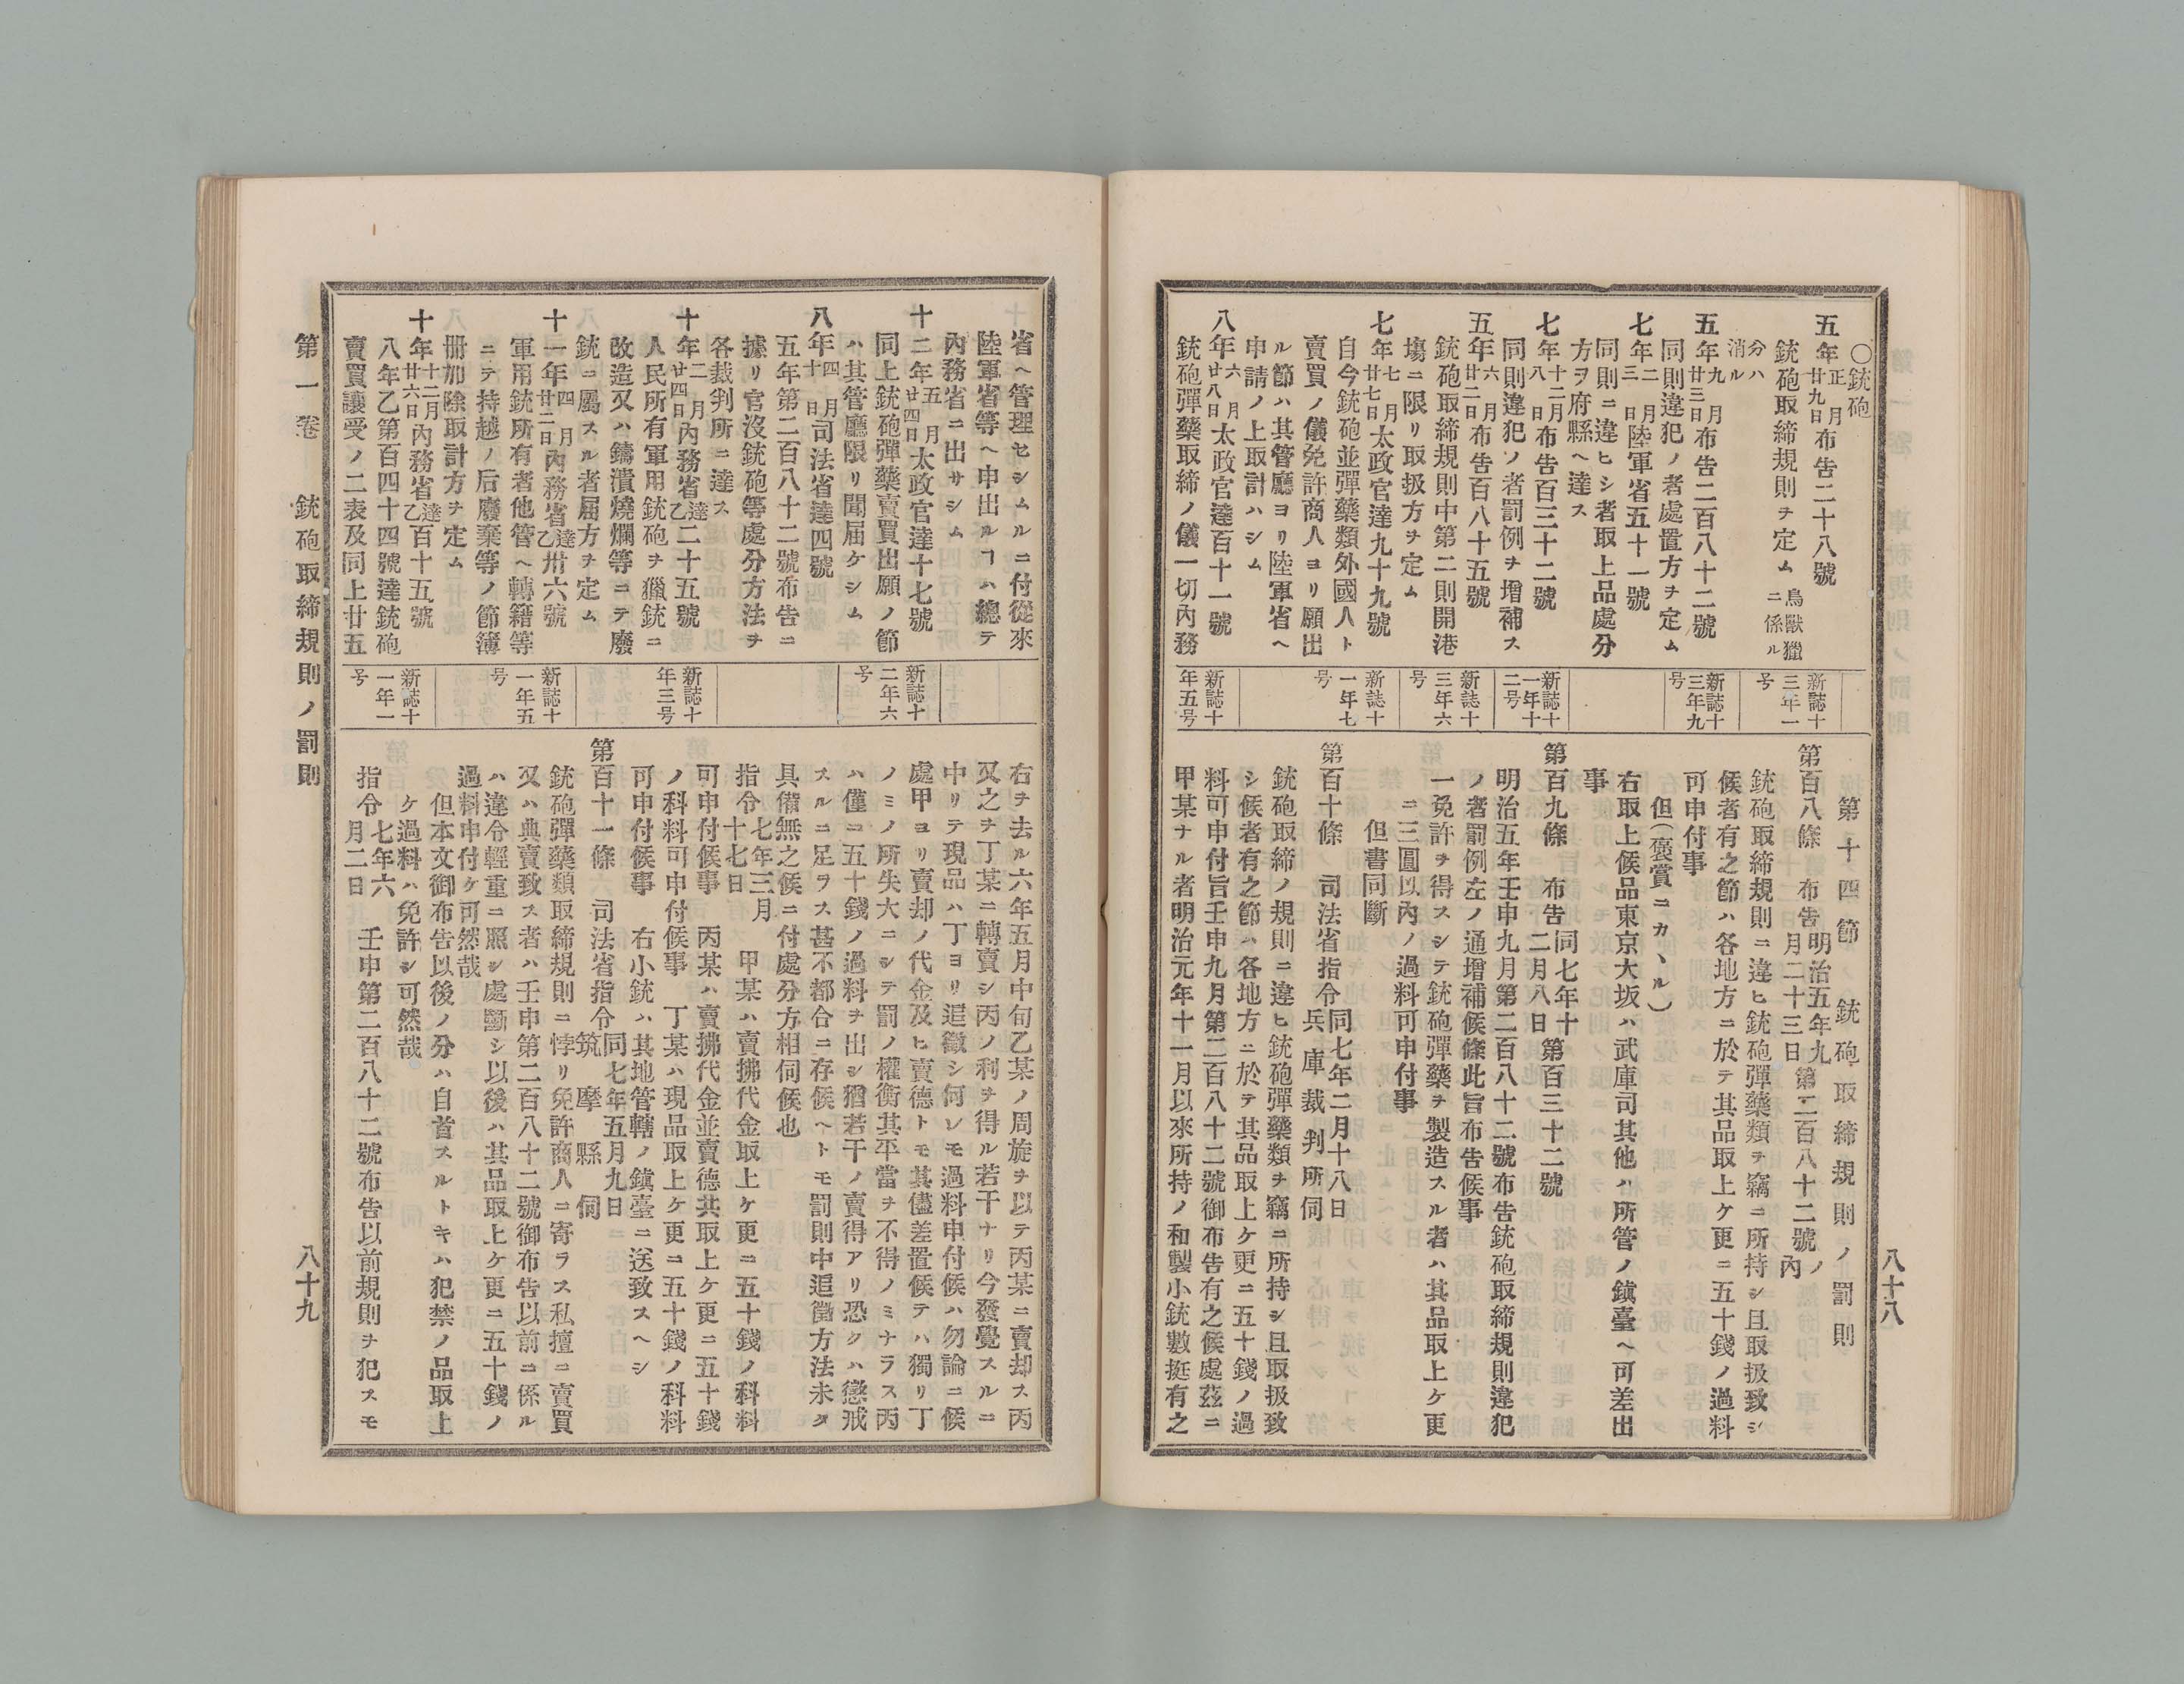 八十八
○銃砲
五年正月廿九日布告二十八號
銃砲取締規則ヲ定ム鳥獸獵ニ係ル
分ハ消ル
五年九月廿三日布告二百八十二號
同則違犯ノ者處置方ヲ定ム
七年二月三日陸軍省五十一號
同則ニ違ヒシ者取上品處分
方ヲ府縣ヘ達ス
七年十二月八日布告百三十二號
同則違犯ノ者罰例ヲ增補ス
五年六月廿二日布告百八十五號
銃砲取締規則中第二則開港
塲ニ限リ取扱方ヲ定ム
七年七月廿七日太政官達九十九號
自今銃砲並彈藥類外國人ト
賣買ノ儀免許商人ヨリ願出
ル節ハ其管廳ヨリ陸軍省ヘ
申請ノ上取計ハシム
八年六月廿八日太政官達百十一號
銃砲彈藥取締ノ儀一切內務
新誌十三年一号
新誌十三年九号
新誌十一年十二号
新誌十三年六号
新誌十一年七号
新誌十年五号
第十四節 銃砲取締規則ノ罰則
第百八條 布告明治五年九月二十三日第二百八十二號ノ內
銃砲取締規則ニ違ヒ銃砲彈藥類ヲ竊ニ所持シ且取扱致シ
候者有之節ハ各地方ニ於テ其品取上ケ更ニ五十錢ノ過料
可申付事
但(褒賞ニカヽル)
右取上候品東京大坂ハ武庫司其他ハ所管ノ鎭臺ヘ可差出
事
第百九條 布告同七年十二月八日第百三十二號
明治五年壬申九月第二百八十二號布告銃砲取締規則違犯
ノ者罰例左ノ通增補候條此旨布告候事
一免許ヲ得スシテ銃砲彈藥ヲ製造スル者ハ其品取上ケ更
ニ三圓以內ノ過料可申付事
但書同斷
第百十條 司法省指令同七年二月十八日兵庫裁判所伺
銃砲取締ノ規則ニ違ヒ銃砲彈藥類ヲ竊ニ所持シ且取扱致
シ候者有之節ハ各地方ニ於テ其品取上ケ更ニ五十錢ノ過
料可申付旨壬申九月第二百八十二號御布告有之候處玆ニ
甲某ナル者明治元年十一月以來所持ノ和製小銃數挺有之
省ヘ管理セシムルニ付從來
陸軍省等ヘ申出ルヿハ總テ
內務省ニ出サシム
十二年五月廿四日太政官達十七號
同上銃砲彈藥賣買出願ノ節
ハ其管廳限リ聞届ケシム
八年四月十日司法省達四號
五年第二百八十二號布告ニ
據リ官沒銃砲等處分方法ヲ
各裁判所ニ達ス
十年二月廿四日內務省達乙二十五號
人民所有軍用銃砲ヲ獵銃ニ
改造又ハ鑄潰燒爛等ニテ廢
銃ニ屬スル者届方ヲ定ム
十一年四月廿二日內務省達乙卅六號
軍用銃所有者他管ヘ轉籍等
ニテ持越ノ后廢棄等ノ節簿
冊加除取計方ヲ定ム
十年十二月廿六日內務省達乙百十五號
八年乙第百四十四號達銃砲
賣買讓受ノ二表及同上廿五
新誌十二年六号
新誌十年三号
新誌十一年五号
新誌十一年一号
右ヲ去ル六年五月中旬乙某ノ周旋ヲ以テ丙某ニ賣却ス丙
又之ヲ丁某ニ轉賣シ丙ノ利ヲ得ル若干ナリ今發覺スルニ
中リテ現品ハ丁ヨリ追徵シ何レモ過料申付候ハ勿論ニ候
處甲ヨリ賣却ノ代金及ヒ賣德トモ其儘差置候テハ獨リ丁
ノミノ所失大ニシテ罰ノ權衡其平當ヲ不得ノミナラス丙
ハ僅ニ五十錢ノ過料ヲ出シ猶若干ノ賣得アリ恐クハ懲戒
スルニ足ラス甚不都合ニ存候ヘトモ罰則中追徵方法未タ
具備無之候ニ付處分方相伺候也
指令七年三月十七日 甲某ハ賣拂代金取上ケ更ニ五十錢ノ科料
可申付候事 丙某ハ賣拂代金並賣德共取上ケ更ニ五十錢
ノ科料可申付候事 丁某ハ現品取上ケ更ニ五十錢ノ科料
可申付候事 右小銃ハ其地管轄ノ鎭臺ニ送致スヘシ
第百十一條 司法省指令同七年五月九日筑摩縣伺
銃砲彈藥類取締規則ニ悖リ免許商人ニ寄ラス私擅ニ賣買
又ハ典賣致ス者ハ壬申第二百八十二號御布告以前ニ係ル
ハ違令輕重ニ照シ處斷シ以後ハ其品取上ケ更ニ五十錢ノ
過料申付ケ可然哉
但本文御布告以後ノ分ハ自首スルトキハ犯禁ノ品取上
ケ過料ハ免許シ可然哉
指令七年六月二日 壬申第二百八十二號布告以前規則ヲ犯スモ
第一卷 銃砲取締規則ノ罰則
八十九